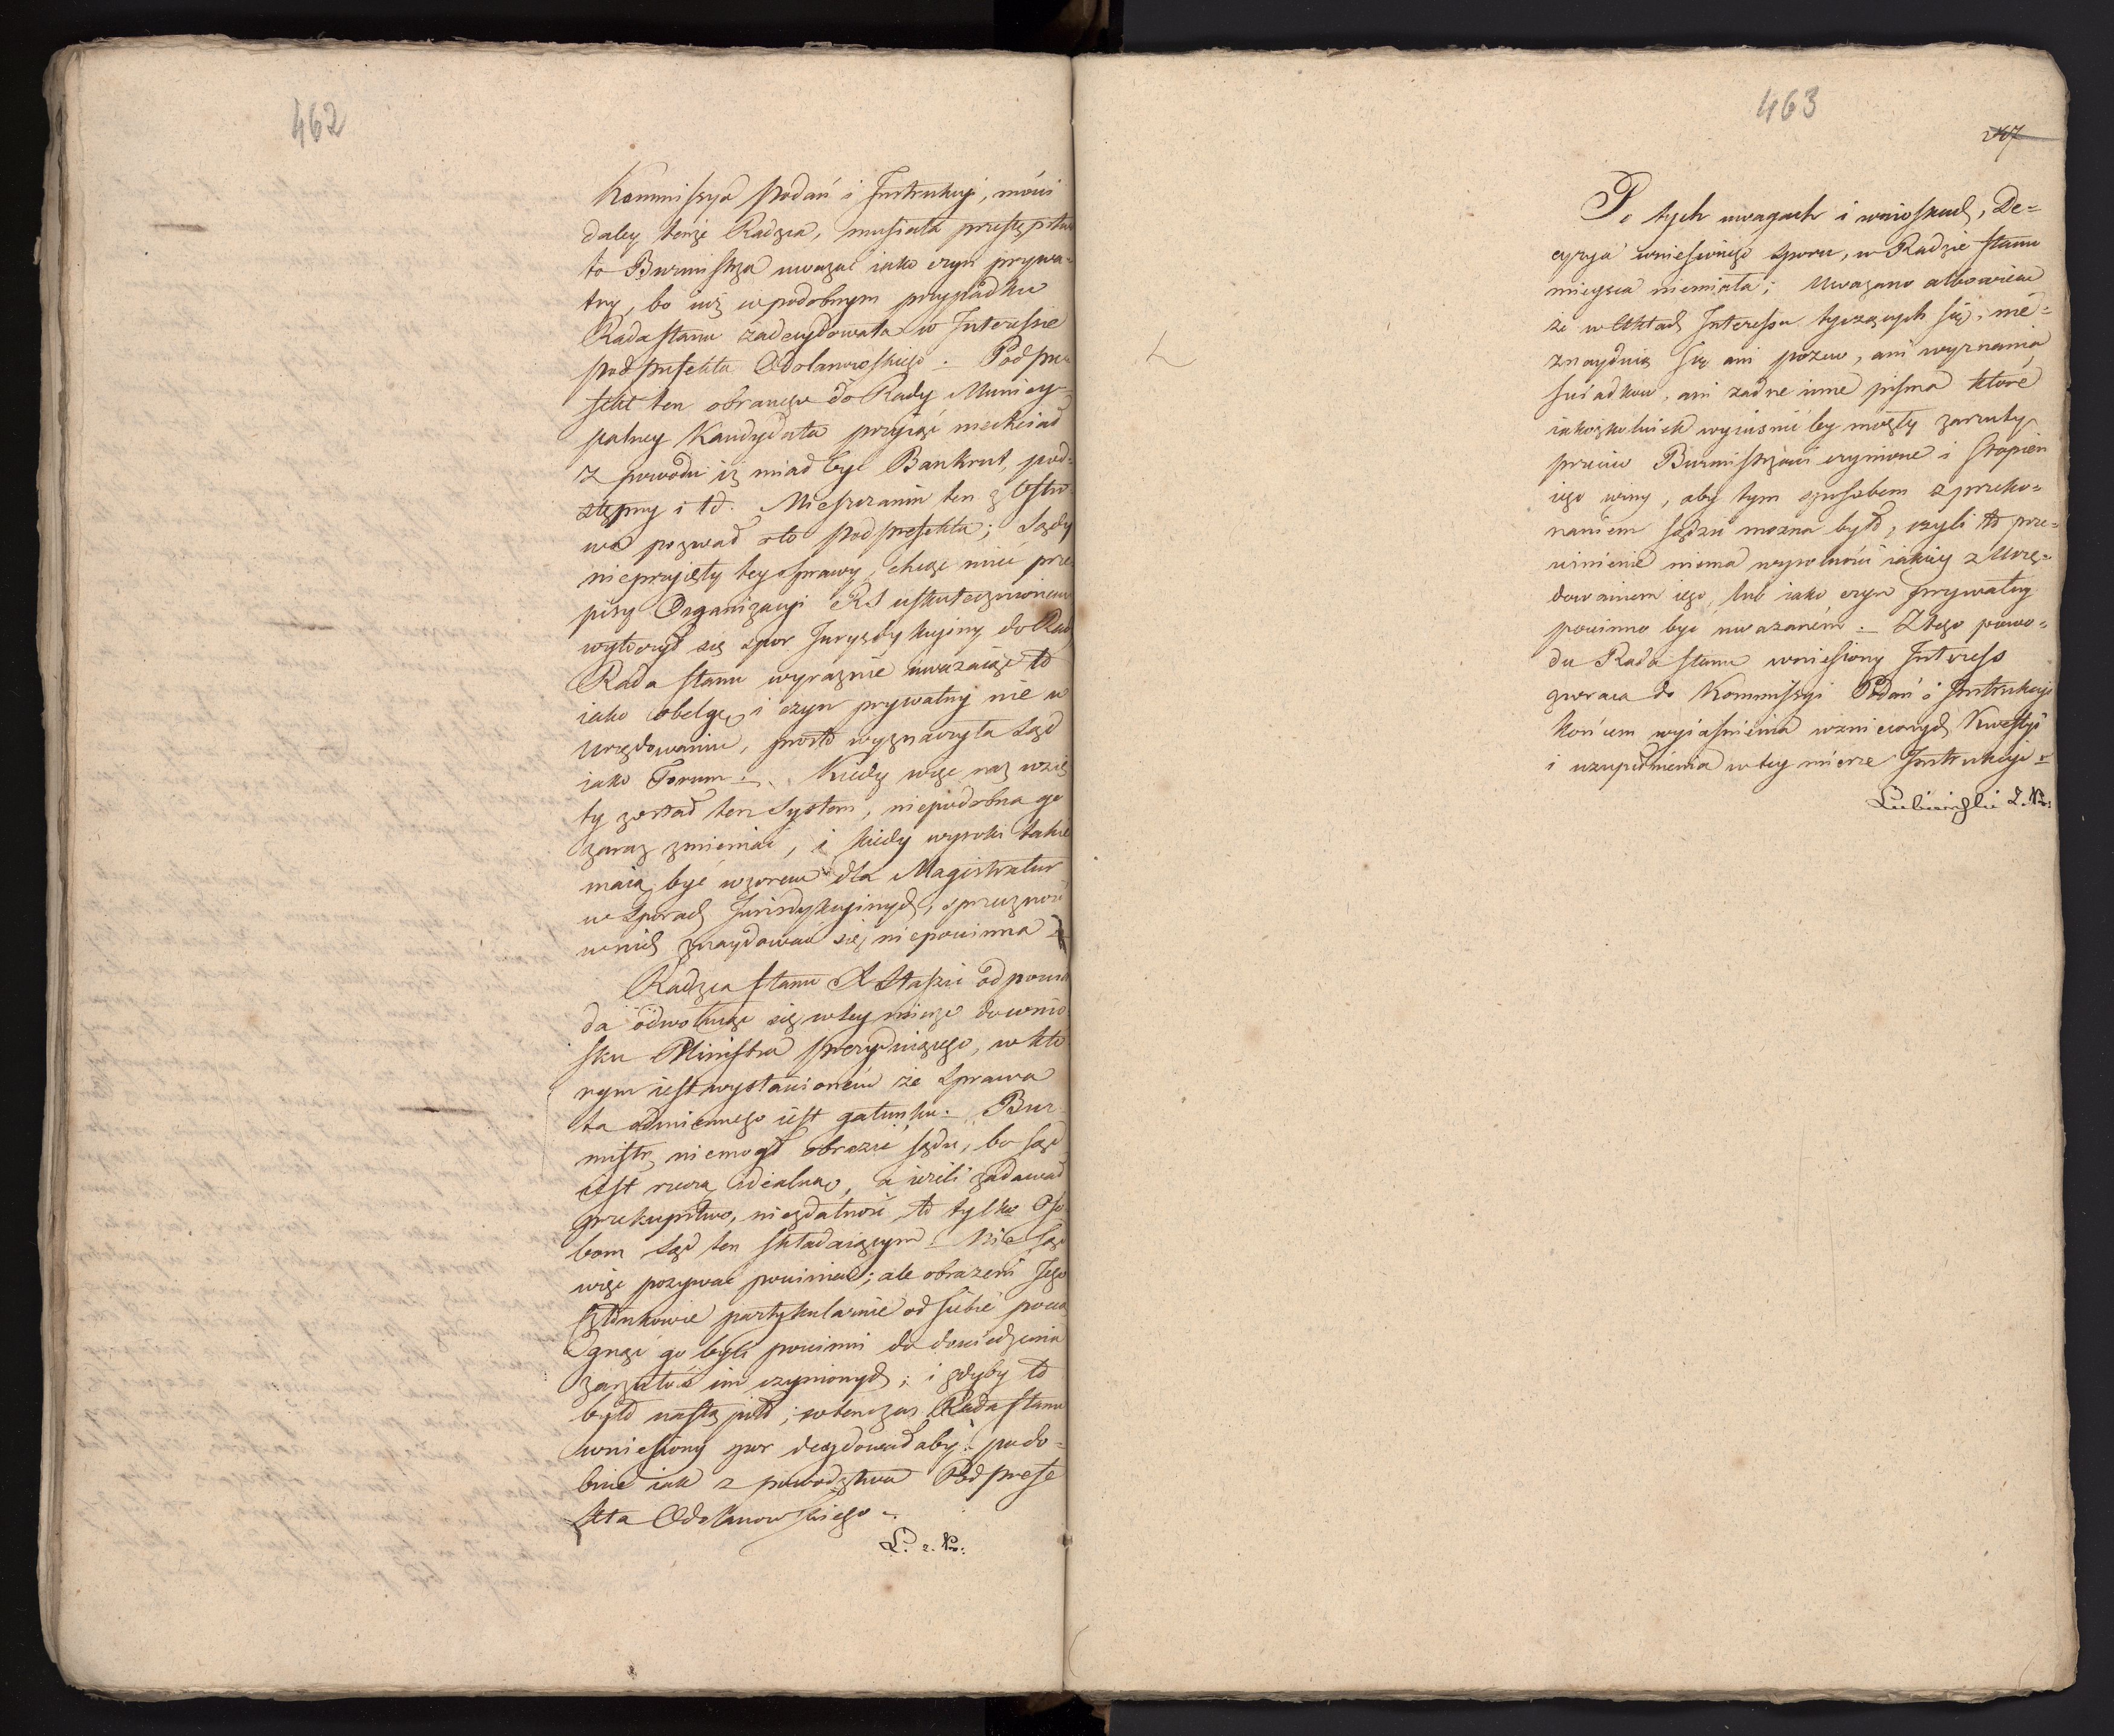 462
Kommissya Podań i Instrukcyi, mówi
daley tenże Radzca, musiała przestępstwo
to Burmistrza uważać iako czyn prywa-
tny, bo iuż w podobnym przypadku
Rada Stanu zadecydowała w Interessie
Podprefekta Odolanowskiego. Podpre-
fekt ten obranego do Rady Municy-
palney Kandydata przyiąć niechciał
z powodu iż miał być Bankrut, pod-
stępny i td. Mieszczanin ten z Ostro-
wa pozwał o to Podprefekta; Sądy
nieprzyięły tey sprawy, chcąc mieć prze
pisy Organizacyi RS uskutecznionem
wytoczył się spor Jurysdykcyiny do Rad
Rada Stanu wyraźnie uważaiąc to
iako obelgę i czyn prywatny nie w
Urzędowaniu, prosto wyznaczyła Sąd
iako Forum. Kiedy więc raz wzię
ty został ten System, niepodobna go
zaraz zmieniać, i kiedy wyroki takie
maią być wzorem dla Magistratur
w Sporach Jurisdykcyinych, sprzeczność
w nich znaydować się niepowinna
Radzca Stanu X Staszic odpowia
da odwołuiąc się w tey mierze do wnio
sku Ministra Prezyduiącego, w któ
rym iest wystawionem że Sprawa
ta odmiennego iest gatunku. Bur-
mistrz niemógł obrazić Sądu, bo Sąd
iest rzeczą idealną, a ieżeli zadawał
przekupstwo, niezdatność, to tylko Oso
bom Sąd ten składaiącym. Nie Sąd
więc pozywać powinien; ale obrażeni Jego
Członkowie partykularnie od siebie pocią
gnąć go byli powinni do dowiedzenia
zarzutów im czynionych; i gdyby to
było nastąpiło, wtenczas Rada Stanu
wniesiony spor decydowałaby podo-
bnie iak z powodztwa Podprefe
kta Odolanowskiego.
L. z. N:
463
247
Po tych uwagach i wnioskach, De-
cyzya wniesionego Sporu, w Radzie Stanu
mieysca niemiała; Uważano albowiem
że w Aktach Interessu tyczących się, nie-
znayduią się ani pozew, ani wyznania
świadków, ani żadne inne pisma które
iakożkolwiek wyiaśnić by mogły zarzuty
przeciw Burmistrzowi czynione i stopień
iego winy, aby tym sposobem z przeko-
naniem sądzić można było, czyli to prze-
winienie niema wspolności iakiey z Urzę-
dowaniem iego, lub iako czyn prywatny
powinno być uważanem. Z tego powo-
du Rada Stanu wniesiony Interess
zwraca do Kommissyi Podań i Instrukcyi
końcem wyiaśnienia wznieconych Kwestyi
i uzupełnienia w tey mierze Instrukcyi
Lubieński Z. N: